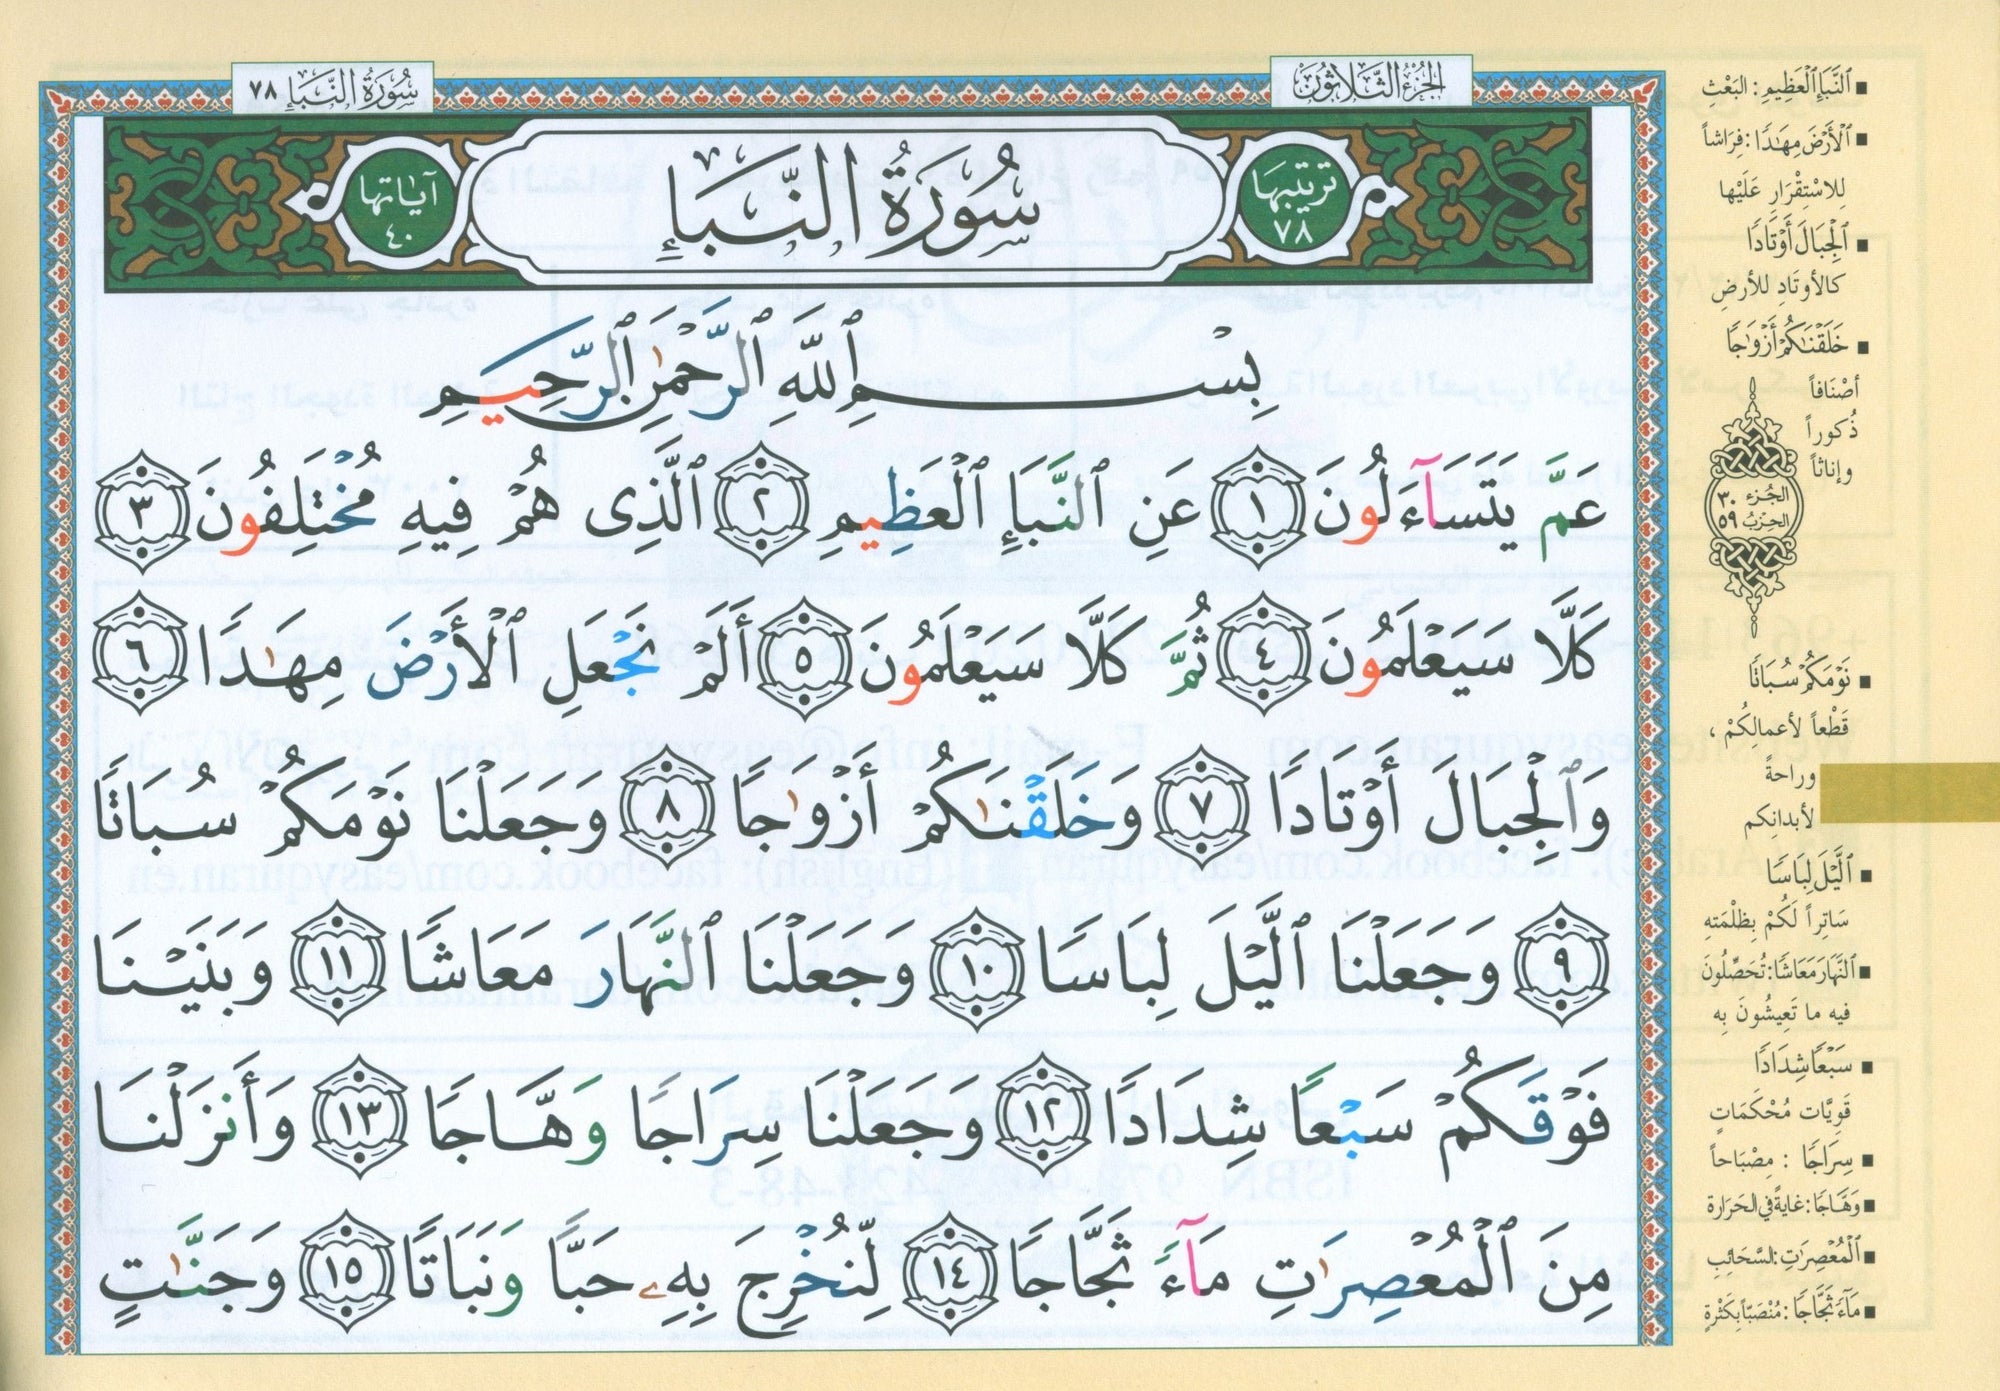 الجزء الثلاثون
سورة النبإ ٧٨
ترتيبها ٧٨
سُورَةُ النَّبَإِ
آياتها ٤٠
بِسْمِ ٱللَّهِ ٱلرَّحْمَٰنِ ٱلرَّحِيمِ
عَمَّ يَتَسَآءَلُونَ ١ عَنِ ٱلنَّبَإِ ٱلْعَظِيمِ ٢ ٱلَّذِى هُمْ فِيهِ مُخْتَلِفُونَ ٣
كَلَّا سَيَعْلَمُونَ ٤ ثُمَّ كَلَّا سَيَعْلَمُونَ ٥ أَلَمْ نَجْعَلِ ٱلْأَرْضَ مِهَٰدًا ٦
وَٱلْجِبَالَ أَوْتَادًا ٧ وَخَلَقْنَٰكُمْ أَزْوَٰجًا ٨ وَجَعَلْنَا نَوْمَكُمْ سُبَاتًا
٩ وَجَعَلْنَا ٱلَّيْلَ لِبَاسًا ١٠ وَجَعَلْنَا ٱلنَّهَارَ مَعَاشًا ١١ وَبَنَيْنَا
فَوْقَكُمْ سَبْعًا شِدَادًا ١٢ وَجَعَلْنَا سِرَاجًا وَهَّاجًا ١٣ وَأَنزَلْنَا
مِنَ ٱلْمُعْصِرَٰتِ مَآءً ثَجَّاجًا ١٤ لِّنُخْرِجَ بِهِۦ حَبًّا وَنَبَاتًا ١٥ وَجَنَّٰتٍ
■ ٱلنَّبَإِ ٱلْعَظِيمِ: البَعْثِ
■ ٱلْأَرْضَ مِهَٰدًا: فِرَاشاً
لِلاسْتِقْرَارِ عَلَيْها
■ ٱلْجِبَالَ أَوْتَادًا
كالأوتَادِ للأرضِ
■ خَلَقْنَٰكُمْ أَزْوَٰجًا
أصْنَافاً
ذُكوراً
وإناثاً
الجُزء ٣٠
الحِزبُ ٥٩
■ نَوْمَكُمْ سُبَاتًا
قَطْعاً لأعمالِكُمْ ،
وراحةً
لأبدانِكم
■ ٱلَّيْلَ لِبَاسًا
سَاتِراً لَكُمْ بِظلْمَتِهِ
■ ٱلنَّهَارَ مَعَاشًا: تُحَصِّلُونَ
فيه ما تَعِيشُونَ بِه
■ سَبْعًا شِدَادًا
قَوِيَّات مُحْكَمَاتٍ
■ سِرَاجًا : مِصْبَاحاً
■ وَهَّاجًا: غايةً في الحَرَارة
■ ٱلْمُعْصِرَٰتِ: السَّحَائِبِ
■ مَآءً ثَجَّاجًا: مُنْصَبّاً بِكَثْرةٍ